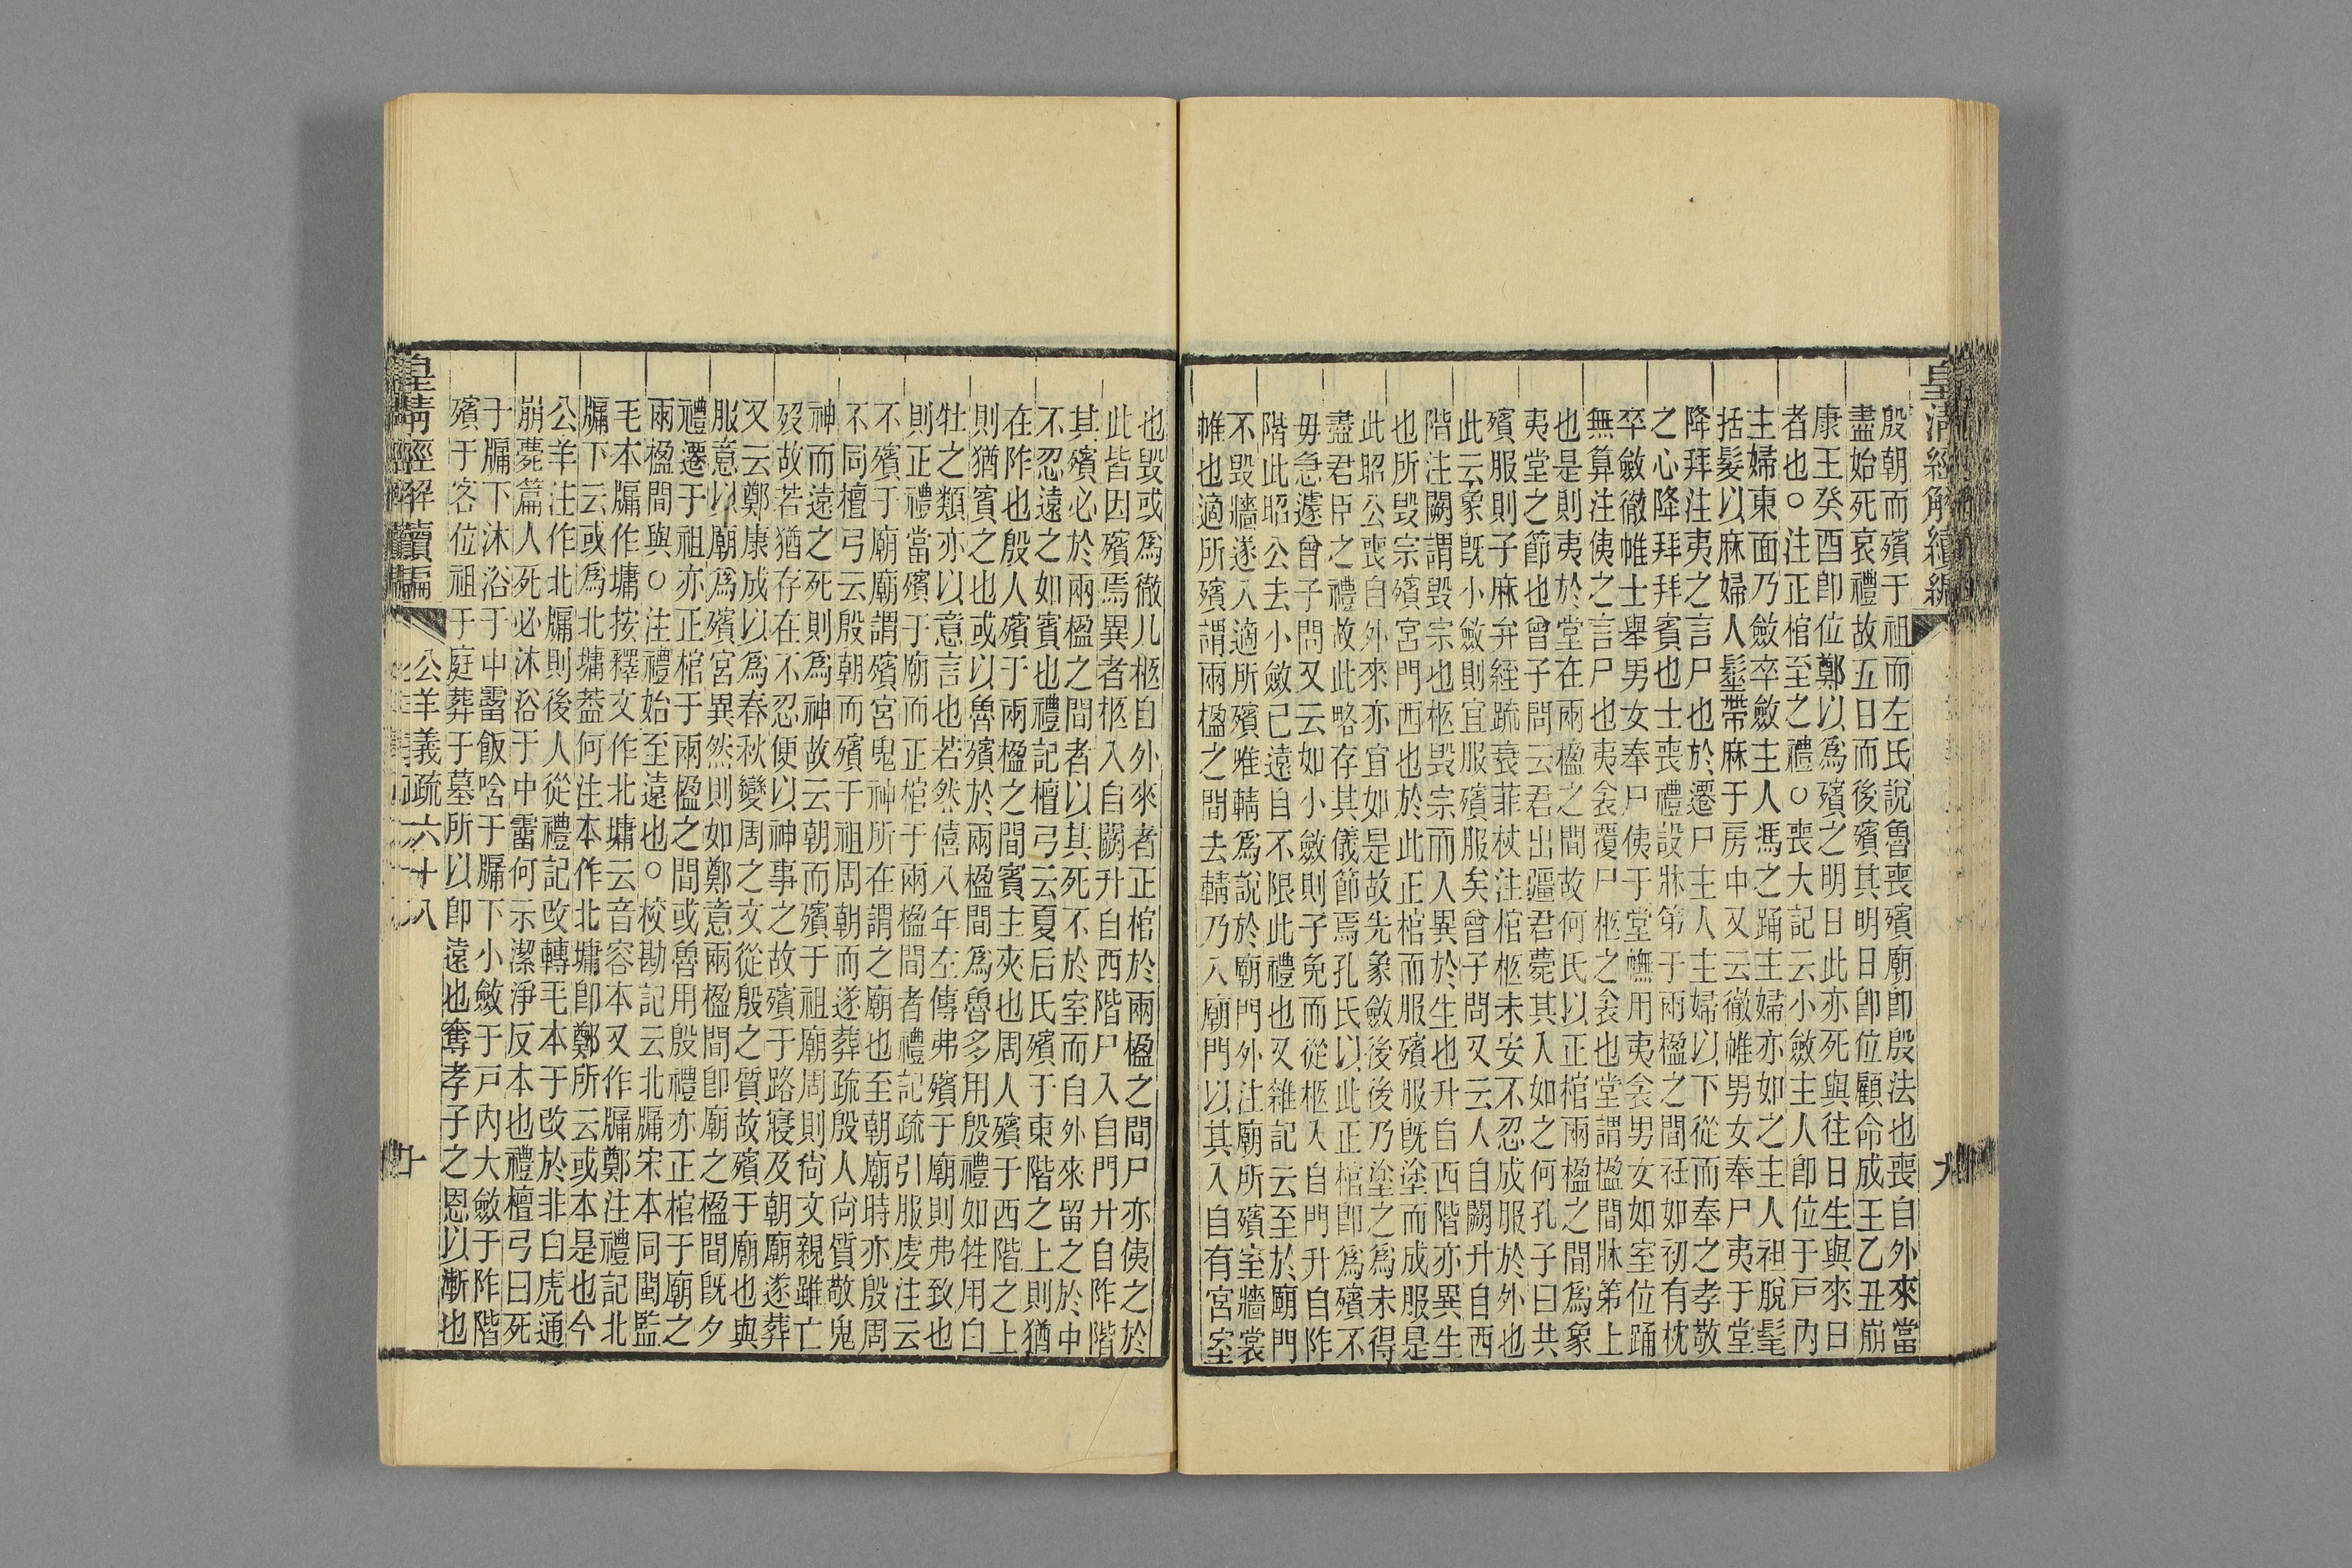 皇清經解續編
九
殷朝而殯于祖而左氏說魯喪殯廟卽殷法也喪自外來當
盡始死哀禮故五日而後殯其明日卽位顧命成王乙丑崩
康王癸酉卽位鄭以爲殯之明日此亦死與往日生與來日
者也○注正棺至之禮○喪大記云小斂主人卽位于戶內
主婦東面乃斂卒斂主人馮之踊主婦亦如之主人袒脫髦
括髮以麻婦人髽帶麻于房中又云徹帷男女奉尸夷于堂
降拜注夷之言尸也於遷尸主人主婦以下從而奉之孝敬
之心降拜拜賓也士喪禮設牀第于兩楹之間衽如初有枕
卒斂徹帷士舉男女奉尸侇于堂幠用夷衾男女如室位踊
無算注侇之言尸也夷衾覆尸柩之衾也堂謂楹間牀第上
也是則夷於堂在兩楹之間故何氏以正棺兩楹之間爲象
夷堂之節也曾子問云君出疆君薨其入如之何孔子曰共
殯服則子麻弁絰疏衰菲杖注棺柩未安不忍成服於外也
此云象旣小斂則宜服殯服矣曾子問又云人自闕升自西
階注闕謂毀宗也柩毀宗而入異於生也升自西階亦異生
也所毀宗殯宮門西也於此正棺而服殯服旣塗而成服是
此昭公喪自外來亦宜如是故先象斂後後乃塗之爲未得
盡君臣之禮故此略存其儀節焉孔氏以此正棺卽爲殯不
毋急遽曾子問又云如小斂則子免而從柩入自門升自阼
階此昭公去小斂已遠自不限此禮也又雜記云至於廟門
不毀牆遂入適所殯唯輤爲說於廟門外注廟所殯室牆裳
帷也適所殯謂兩楹之間去輤乃入廟門以其入自有宮室
也毀或爲徹凡柩自外來者正棺於兩楹之間尸亦侇之於
此皆因殯焉異者柩入自闕升自西階尸入自門升自阼階
其殯必於兩楹之間者以其死不於室而自外來留之於中
不忍遠之如賓也禮記檀弓云夏后氏殯于東階之上則猶
在阼也殷人殯于兩楹之間賓主夾也周人殯于西階之上
則猶賓之也或以魯殯於兩楹間爲魯多用殷禮如牲用白
牡之類亦以意言也若然僖八年左傳弗殯于廟則弗致也
則正禮當殯于廟而正棺于兩楹間者禮記疏引服虔注云
不殯于廟廟謂殯宮鬼神所在謂之廟也至朝廟時亦殷周
不同檀弓云殷朝而殯于祖周朝而遂葬疏殷人尙質敬鬼
神而遠之死則爲神故云朝而殯于祖廟周則尙文親雖亡
歿故若猶存在不忍便以神事之故殯于路寢及朝廟遂葬
又云鄭康成以爲春秋變周之文從殷之質故殯于廟也與
服意以廟爲殯宮異然則如鄭意兩楹間卽廟之楹間旣夕
禮遷于祖亦正棺于兩楹之間或魯用殷禮亦正棺于廟之
兩楹間與○注禮始至遠也○校勘記云北牖宋本同閩監
毛本牖作墉按釋文作北墉云音容本又作牖鄭注禮記北
牖下云或爲北墉葢何注本作北墉卽鄭所云或本是也今
公羊注作北牖則後人從禮記改轉毛本于改於非白虎通
崩薨篇人死必沐浴于中霤何示潔淨反本也禮檀弓曰死
于牖下沐浴于中霤飯唅于牖下小斂于戶內大斂于阼階
殯于客位祖于庭葬于墓所以卽遠也奪孝子之恩以漸也
皇清經解續編
公羊義疏六十八
十